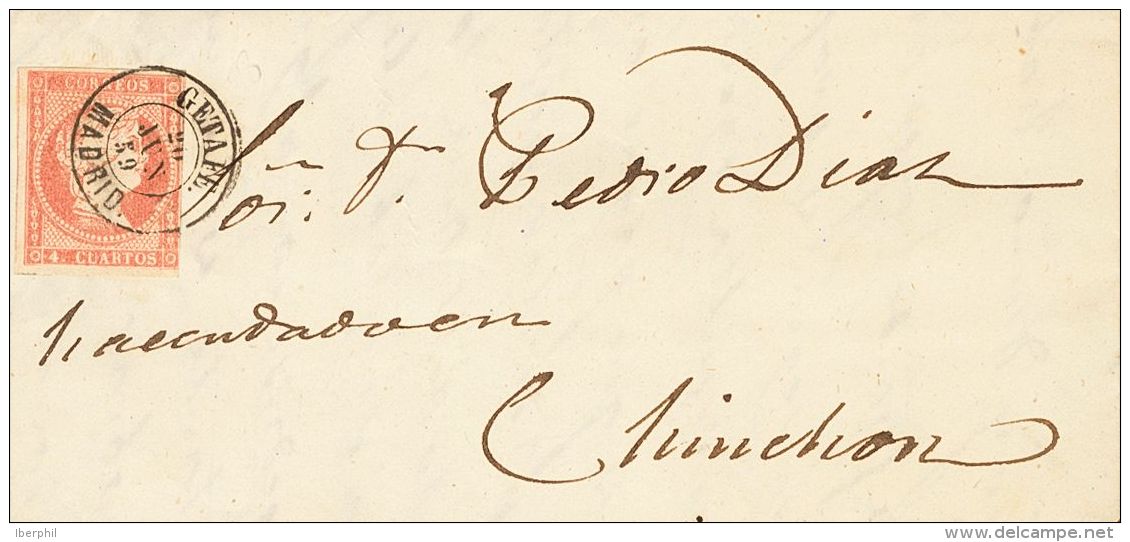 CORREOS
GETAFE.
20
JUN
59
MADRID.
4 CUARTOS
Sor. Dn. Pedro Diaz
hacendado en
Chinchon
Iberphil
delcampe.net